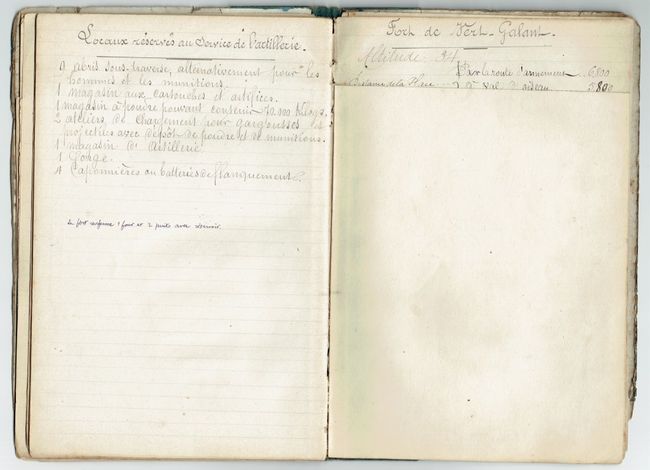 Locaux réservés au Service de l'artillerie.
9 abris sous-traverse, alternativement pour les
hommes et les munitions.
1 magasin aux cartouches et artifices.
1 magasin à poudre pouvant contenir 70.000 Kilogs.
2 ateliers de chargement pour gargousses et
projectiles avec dépôt de poudre et de munitions.
1 magasin d'Artillerie
1 Forge.
4 Caponnières ou batteries de flanquement.
Le fort renferme 1 four et 2 puits avec réservoir.
Fort de Vert-Galant.
Altitude 94
Par la route d'armement 6.800
Distance de la Place
d° Val d° oiseau 5.800